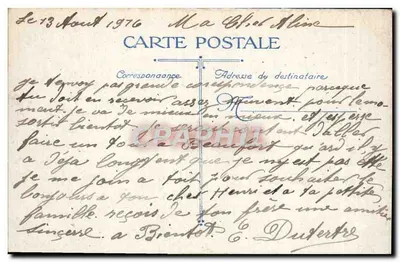 Le 13 Aout 1976 Ma Cher Aline
CARTE POSTALE
Correspondance Adresse du destinataire
je tenvoy pas grande corespondence parceque
tu doit en recevoir assez souvent pour le mo
ment je va de mieux en mieux et j'espere
sortir bientot
faire un tour a
a deja longtemps que je n'y est pas
je me join a toit pour souhaiter le
bonjour a ton cher Henri et a ta petite
famille reçois de ton frere une amitié
sincère. a Bientot. E. Dutertre